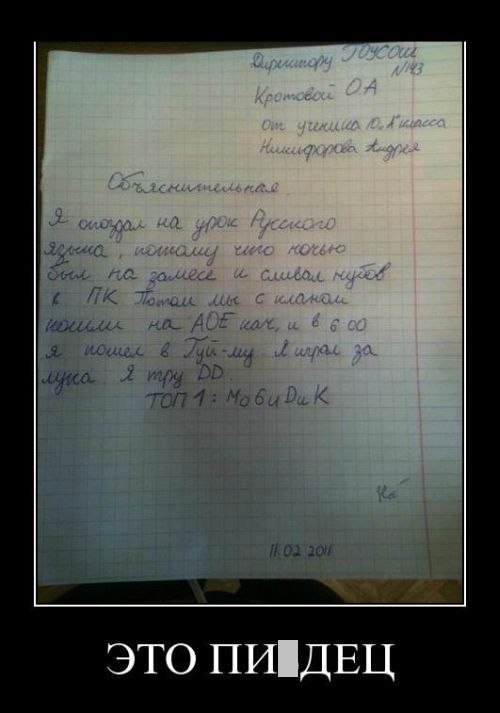 Директору ГОУСОШ
№143
Кротовой О.А
от ученика 10 "А" класса
Никифорова Андрея
Объяснительная.
Я опоздал на урок Русского
языка, потому что ночью
был на замесе и сливал нубов
в ПК Потом мы с кланом
пошли на АОЕ кач, и в 6 00
я пошел в Гуй-му. Я играл за
лука. Я тру DD.
ТОП 1: МобиДиК
11.02.2011
ЭТО ПИ ДЕЦ